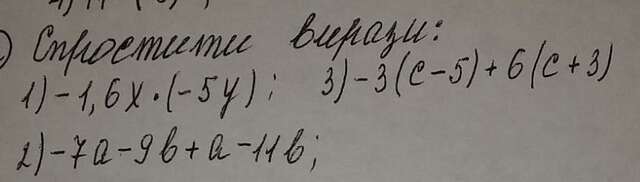 ) Спростити вирази:
1) -1,6x·(-5y); 3) -3(c-5)+6(c+3)
2) -7a-9b+a-11b;